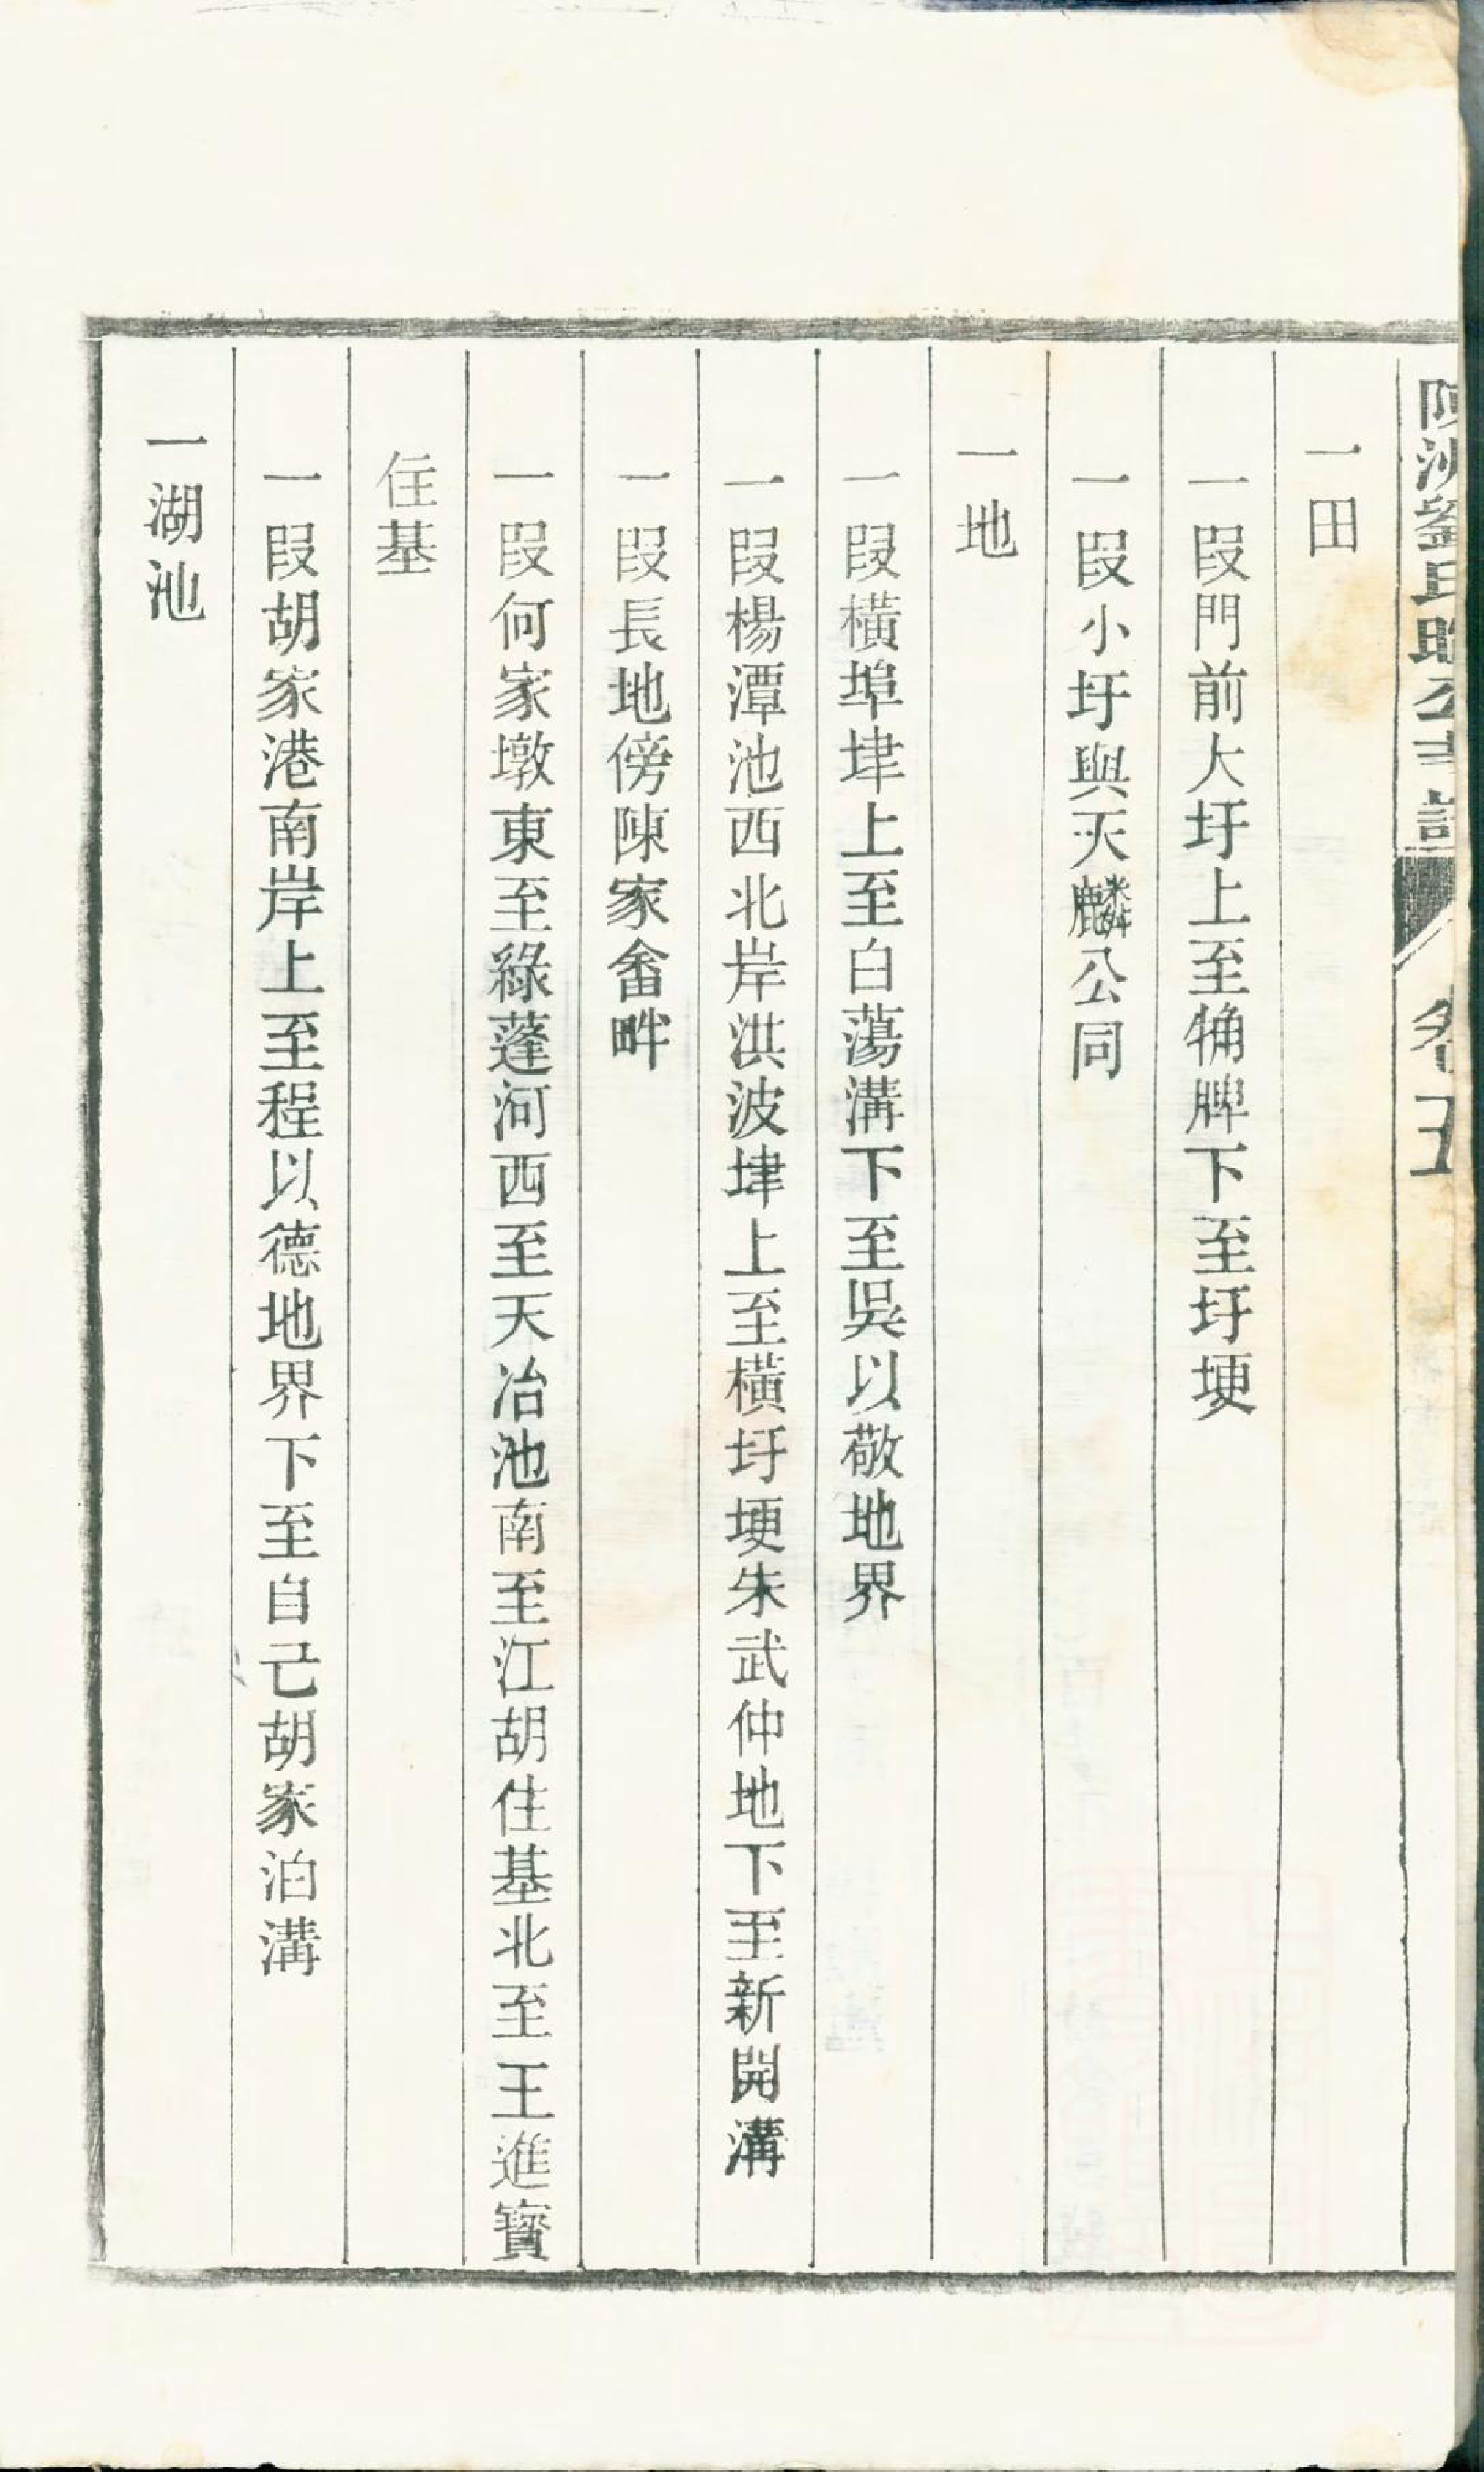 劉氏
卷五
一田
一段門前大圩上至犕脾下至圩埂
一段小圩與天麟公同
一地
一段橫埠垏上至白蕩溝下至吳以敬地界
一段楊潭池西北岸洪波垏上至橫圩埂朱武仲地下至新開溝
一段長地傍陳家畲畔
一段何家墩東至綠蓬河西至天冶池南至江胡住基北至王進寶
住基
一段胡家港南岸上至程以德地界下至自己胡家泊溝
一湖池